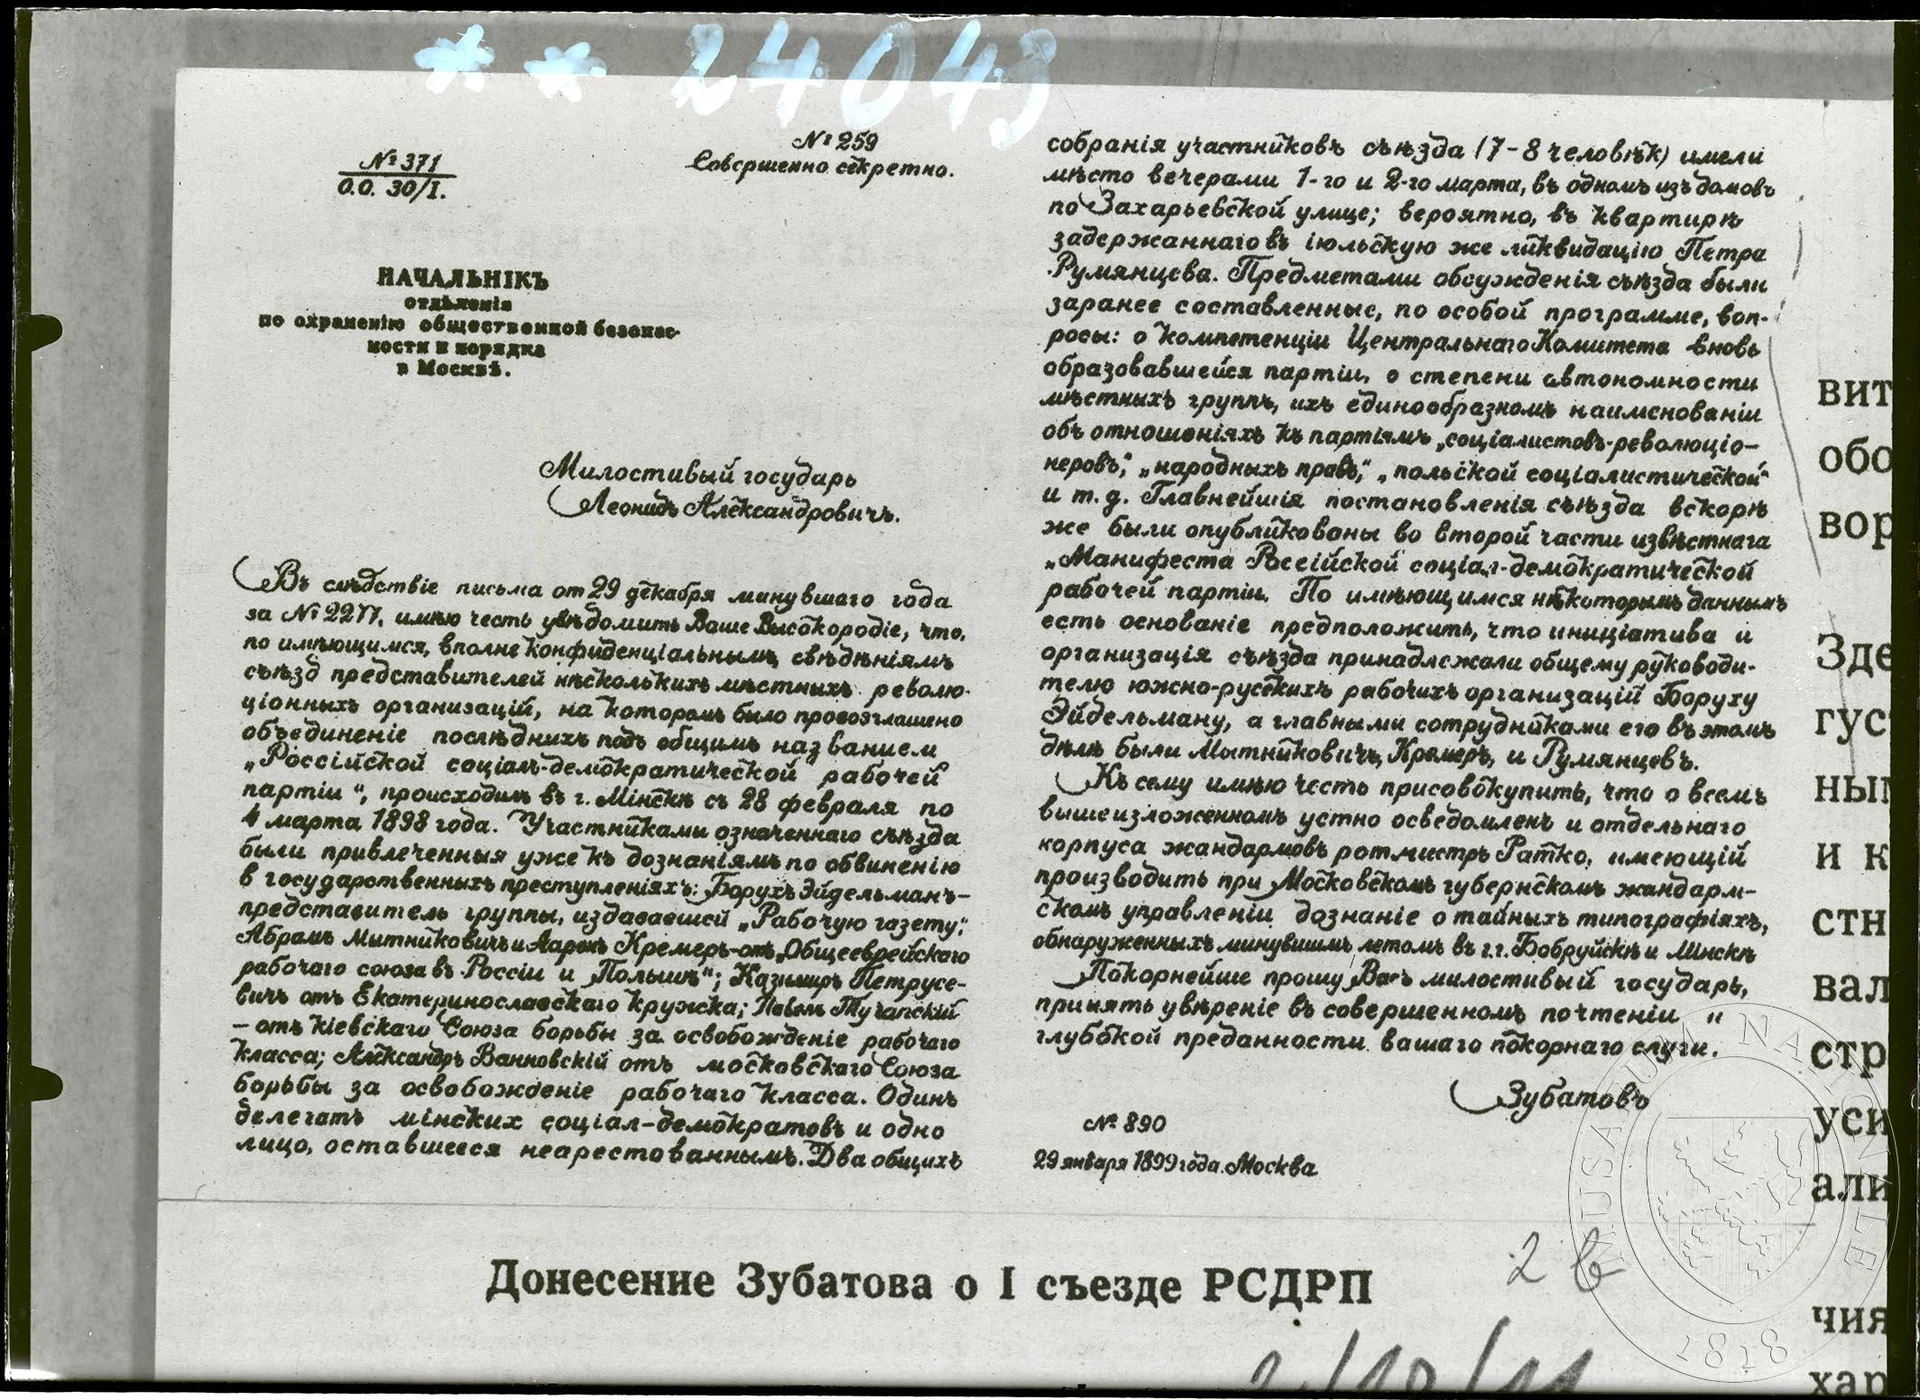 ** 24043
№ 371
О.О. 30/I.
№ 259
Совершенно секретно.
НАЧАЛЬНIКЪ
отдѣленiя
по охраненiю общественной безопас-
ности и порядка
в Москвѣ.
Милостивый государь
Леонидъ Александровичъ.
Въ слѣдствiе письма от 29 декабря минувшаго года
за № 2277, имѣю честь увѣдомить Ваше Высокородiе, что,
по имѣющимся, вполне конфиденцiальнымъ свѣдѣнiямъ
съѣзд представителей нѣсколькихъ мѣстныхъ револю-
цiонныхъ организацiй, на которомъ было провозглашено
объединенiе послѣднихъ подъ общимъ названием
„Россiйской социалъ-демократической рабочей
партiи", происходилъ въ г. Мiнскѣ съ 28 февраля по
4 марта 1898 года. Участниками означеннаго съѣзда
были привлеченныя уже къ дознанiямъ по обвиненiю
в государственныхъ преступленiяхъ: Борухъ Эйдельманъ-
представитель группы, издававшей „Рабочую газету";
Абрамъ Мытниковичъ и Ааронъ Кремеръ-отъ „Общееврейскаго
рабочаго союза въ Россiи и Польшѣ"; Казимиръ Петрусе-
вичъ отъ Екатеринославскаго кружка; Павелъ Тучапскiй
– отъ Кiевскаго Союза борьбы за освобожденiе рабочаго
класса; Александръ Ванновскiй отъ московскаго Союза
борьбы за освобожденiе рабочаго класса. Одинъ
делегатъ мiнских социал-демократовъ и одно
лицо, оставшееся неарестованнымъ. Два общихъ
собранiя участниковъ съѣзда (7-8 человѣк) имели
мѣсто вечерами 1-го и 2-го марта, въ одномъ изъ домовъ
по Захарьевской улице; вероятно, въ квартирѣ
задержаннаго въ iюльскую же ликвидацiю Петра
Румянцева. Предметами обсужденiя съѣзда были
заранее составленные, по особой программе, воп-
росы: о компетенцiи Центральнаго Комитета вновь
образовавшейся партiи, о степени автономности
мѣстныхъ группъ, ихъ единообразномъ наименованiи
объ отношенiяхъ къ партiямъ „соцiалистовъ-революцiо-
неровъ", „народныхъ правъ", „польской соцiалистической"
и т. д. Главнейшiя постановленiя съѣзда вскорѣ
же были опубликованы во второй части извѣстнага
„Манифеста Россiйской соцiал-демократической
рабочей партiи. По имѣющимся нѣкоторымъ даннымъ
есть основанiе предположить, что инициатива и
организацiя съѣзда принадлежали общему руководи-
телю южно-русскихъ рабочихъ организацiй Боруху
Эйдельману, а главными сотрудниками его въ этомъ
дѣлѣ были Мытниковичъ, Кремеръ, и Румянцевъ.
Къ сему имѣю честь присовокупить, что о всемъ
вышеизложенномъ устно осведомленъ и отдельнаго
корпуса жандармовъ ротмистръ Ратко, имеющiй
производить при Московскомъ губернскомъ жандарм-
скомъ управленiи дознанiе о тайныхъ типографiяхъ,
обнаруженныхъ минувшимъ летомъ въ г.г. Бобруйскѣ и Мiнскѣ
Покорнейше прошу Васъ милостивый государь,
принять увѣренiе въ совершенномъ почтенiи и
глубокой преданности вашаго покорнаго слуги.
Зубатовъ
№ 890
29 января 1899 года. Москва
Донесение Зубатова о I съезде РСДРП
2 в
вит
обо
вор
Зде
гус
ным
и к
стн
вал
стр
уси
али
чия
хар
MUSAEUM NATIONALE
1818